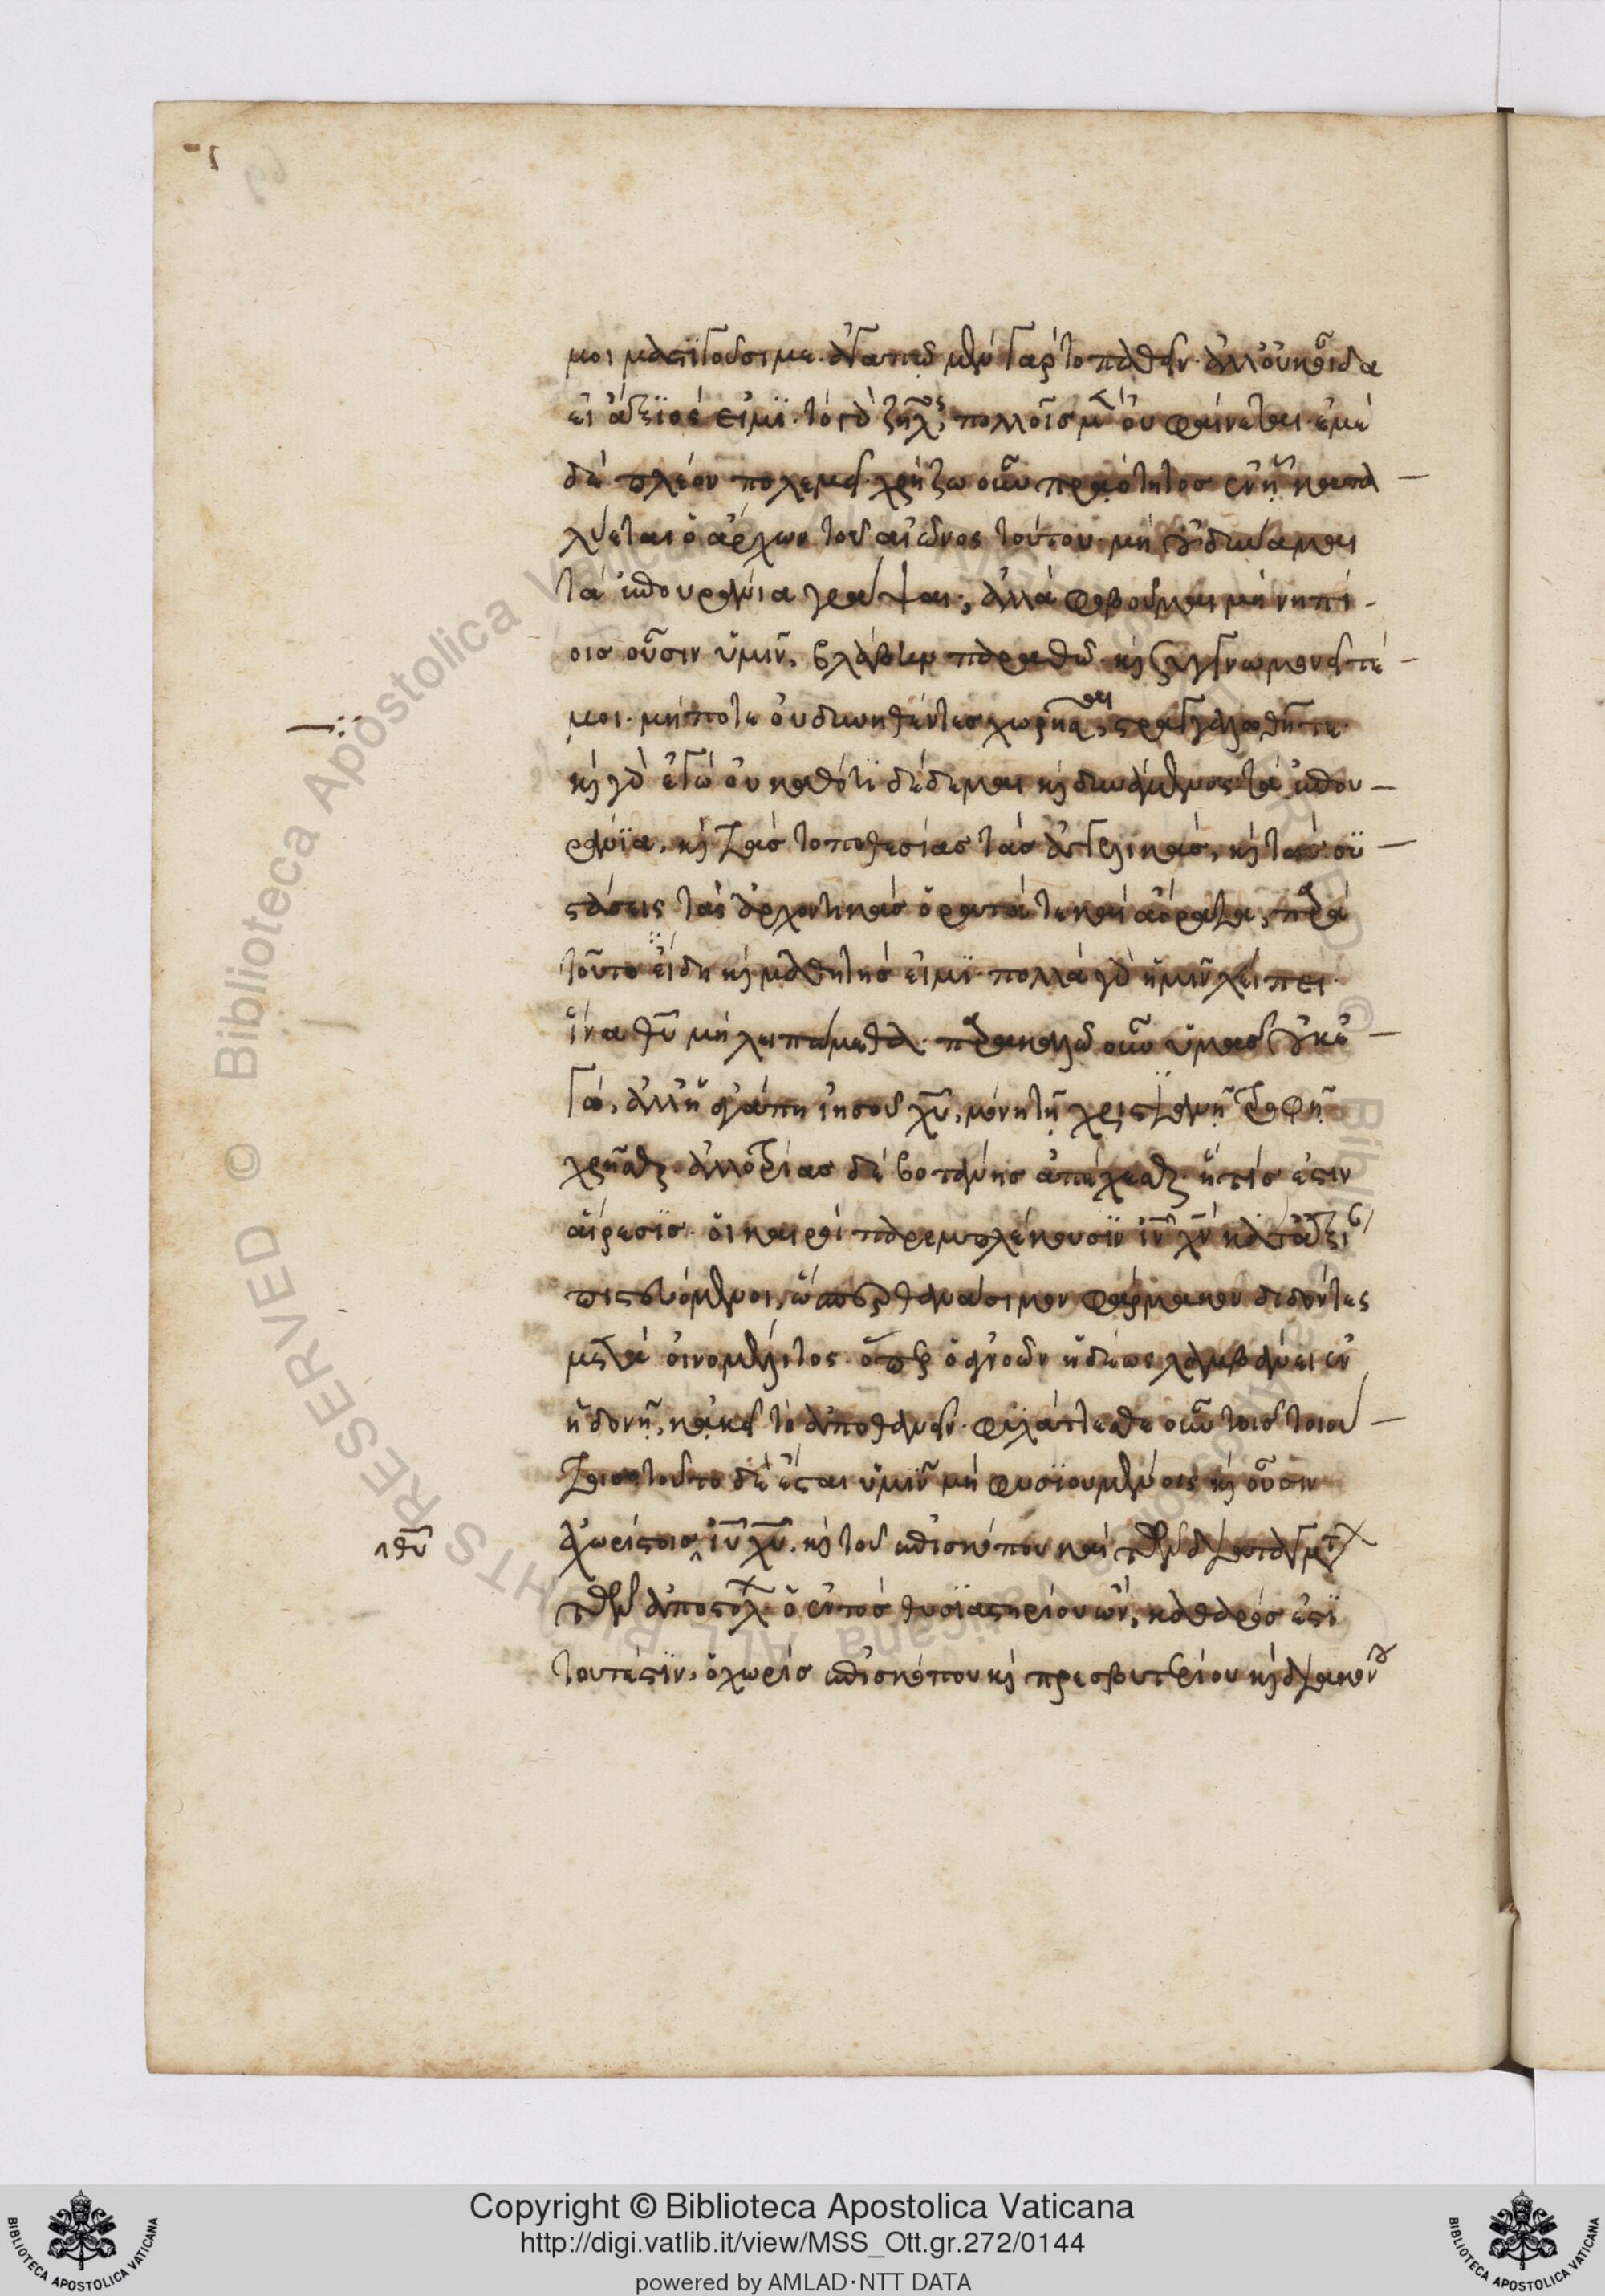 μοι μαστιγοῦσι με. ἀγαπῶ μὲν γὰρ τὸ παθεῖν. ἀλλ' οὐκ οἶδα
εἰ ἄξϊός εἰμϊ. τὸ γὰρ ζῆλος, πολλοῖς μὲν οὐ φαίνεται. ἐμὲ
δὲ πλέον πολεμεῖ. χρήζω οὖν πραότητος ἐν ᾗ κατα
λύεται ὁ ἄρχων τοῦ αἰῶνος τούτου. μὴ οὐ δύναμαι
τὰ ἐπουράνια γράψαι; ἀλλὰ φοβοῦμαι μὴ νηπί-
οις οὖσιν ὑμῖν, βλάβην παραθῶ. καὶ συγγνωμονεῖτέ
μοι. μήποτε οὐ δυνηθέντες χωρῆσαι, στραγγαλωθῆτε.
καὶ γὰρ ἐγὼ οὐ καθότϊ δέδεμαι καὶ δυνάμενος τὰ ἐπου
ράνϊα, καὶ τὰς τοποθεσίας τὰς ἀγγελικάς, καὶ τὰς συ
στάσεις τὰς ἀρχοντικάς ὁρατά τε καὶ ἀόρατα, παρὰ
τοῦτο ἤδη καὶ μαθητής εἰμϊ. πολλὰ γὰρ ἡμῖν λείπει.
ἵνα θῦ μὴ λειπώμεθα. παρακαλῶ οὖν ὑμᾶς οὐκ ἐ
γώ, ἀλλ' ἡ ἀγάπη ἰησοῦ χῦ, μόνῃ τῇ χριστϊανῇ τροφῇ
χρῆσθαι. ἀλλοτρίας δὲ βοτάνης ἀπέχεσθαι. ἥτις ἐστιν
αἵρεσϊς. οἱ καιροὶ παρεμπλέκουσϊν ἰν χν καταξι
πιστευόμενοι, ὥσπερ θανάσιμον φάρμακον διδόντες
μετὰ οἰνομέλιτος. ὅπερ ὁ ἀγνοῶν ἡδέως λαμβάνει ἐν
ἡδονῇ, κἀκεῖ τὸ ἀποθανεῖν. φυλάττεσθε οὖν τοῖς τοιού
τοις. τοῦτο δὲ ἔσται ὑμῖν μὴ φυσϊουμένοις καὶ οὖσιν
ἀχωρίστοις ἰῦ χῦ. καὶ τοῦ ἐπισκόπου καὶ τῶν διαταγμάτων
θῦ
τῶν ἀποστόλων. ὁ ἐντὸς θυσϊαστηρίου ὤν, καθαρός ἐστϊ
τουτέστϊν, ὁ χωρὶς ἐπισκόπου καὶ πρεσβυτερίου καὶ διακόνου
Copyright © Biblioteca Apostolica Vaticana
http://digi.vatlib.it/view/MSS_Ott.gr.272/0144
powered by AMLAD·NTT DATA